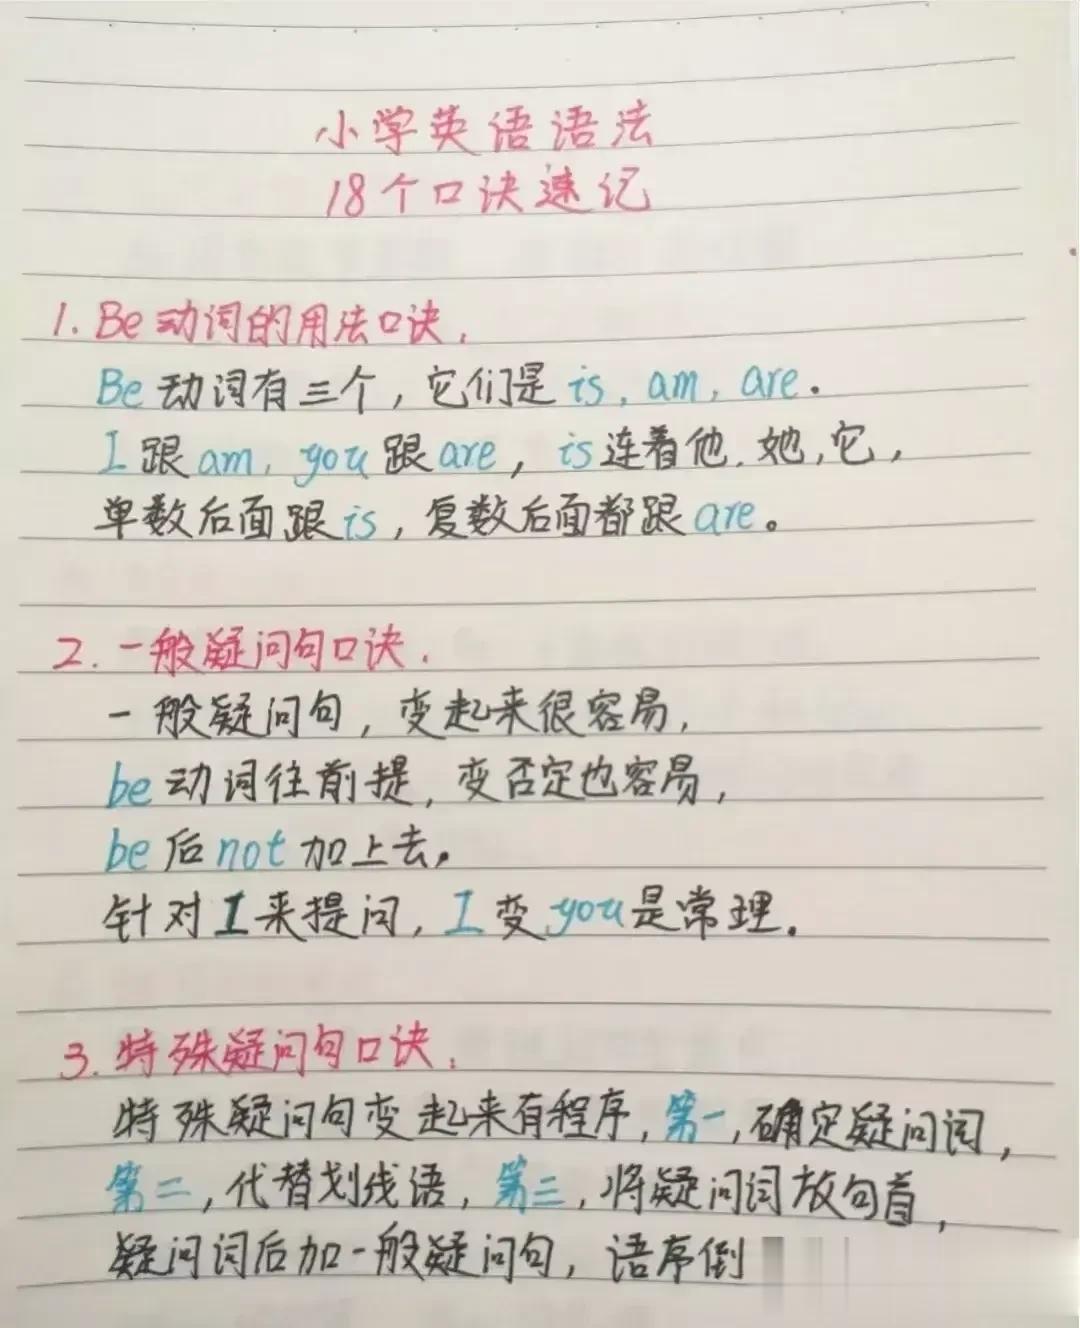 小学英语语法
18个口诀速记
1. Be动词的用法口诀.
Be动词有三个，它们是is, am, are.
I跟am, you跟are，is连着他.她,它，
单数后面跟is，复数后面都跟are。
2. 一般疑问句口诀.
一般疑问句，变起来很容易，
be动词往前提，变否定也容易，
be后not加上去。
针对I来提问，I变you是常理.
3. 特殊疑问句口诀.
特殊疑问句变起来有程序，第一，确定疑问词，
第二，代替划线语，第三，将疑问词放句首，
疑问词后加一般疑问句，语序倒